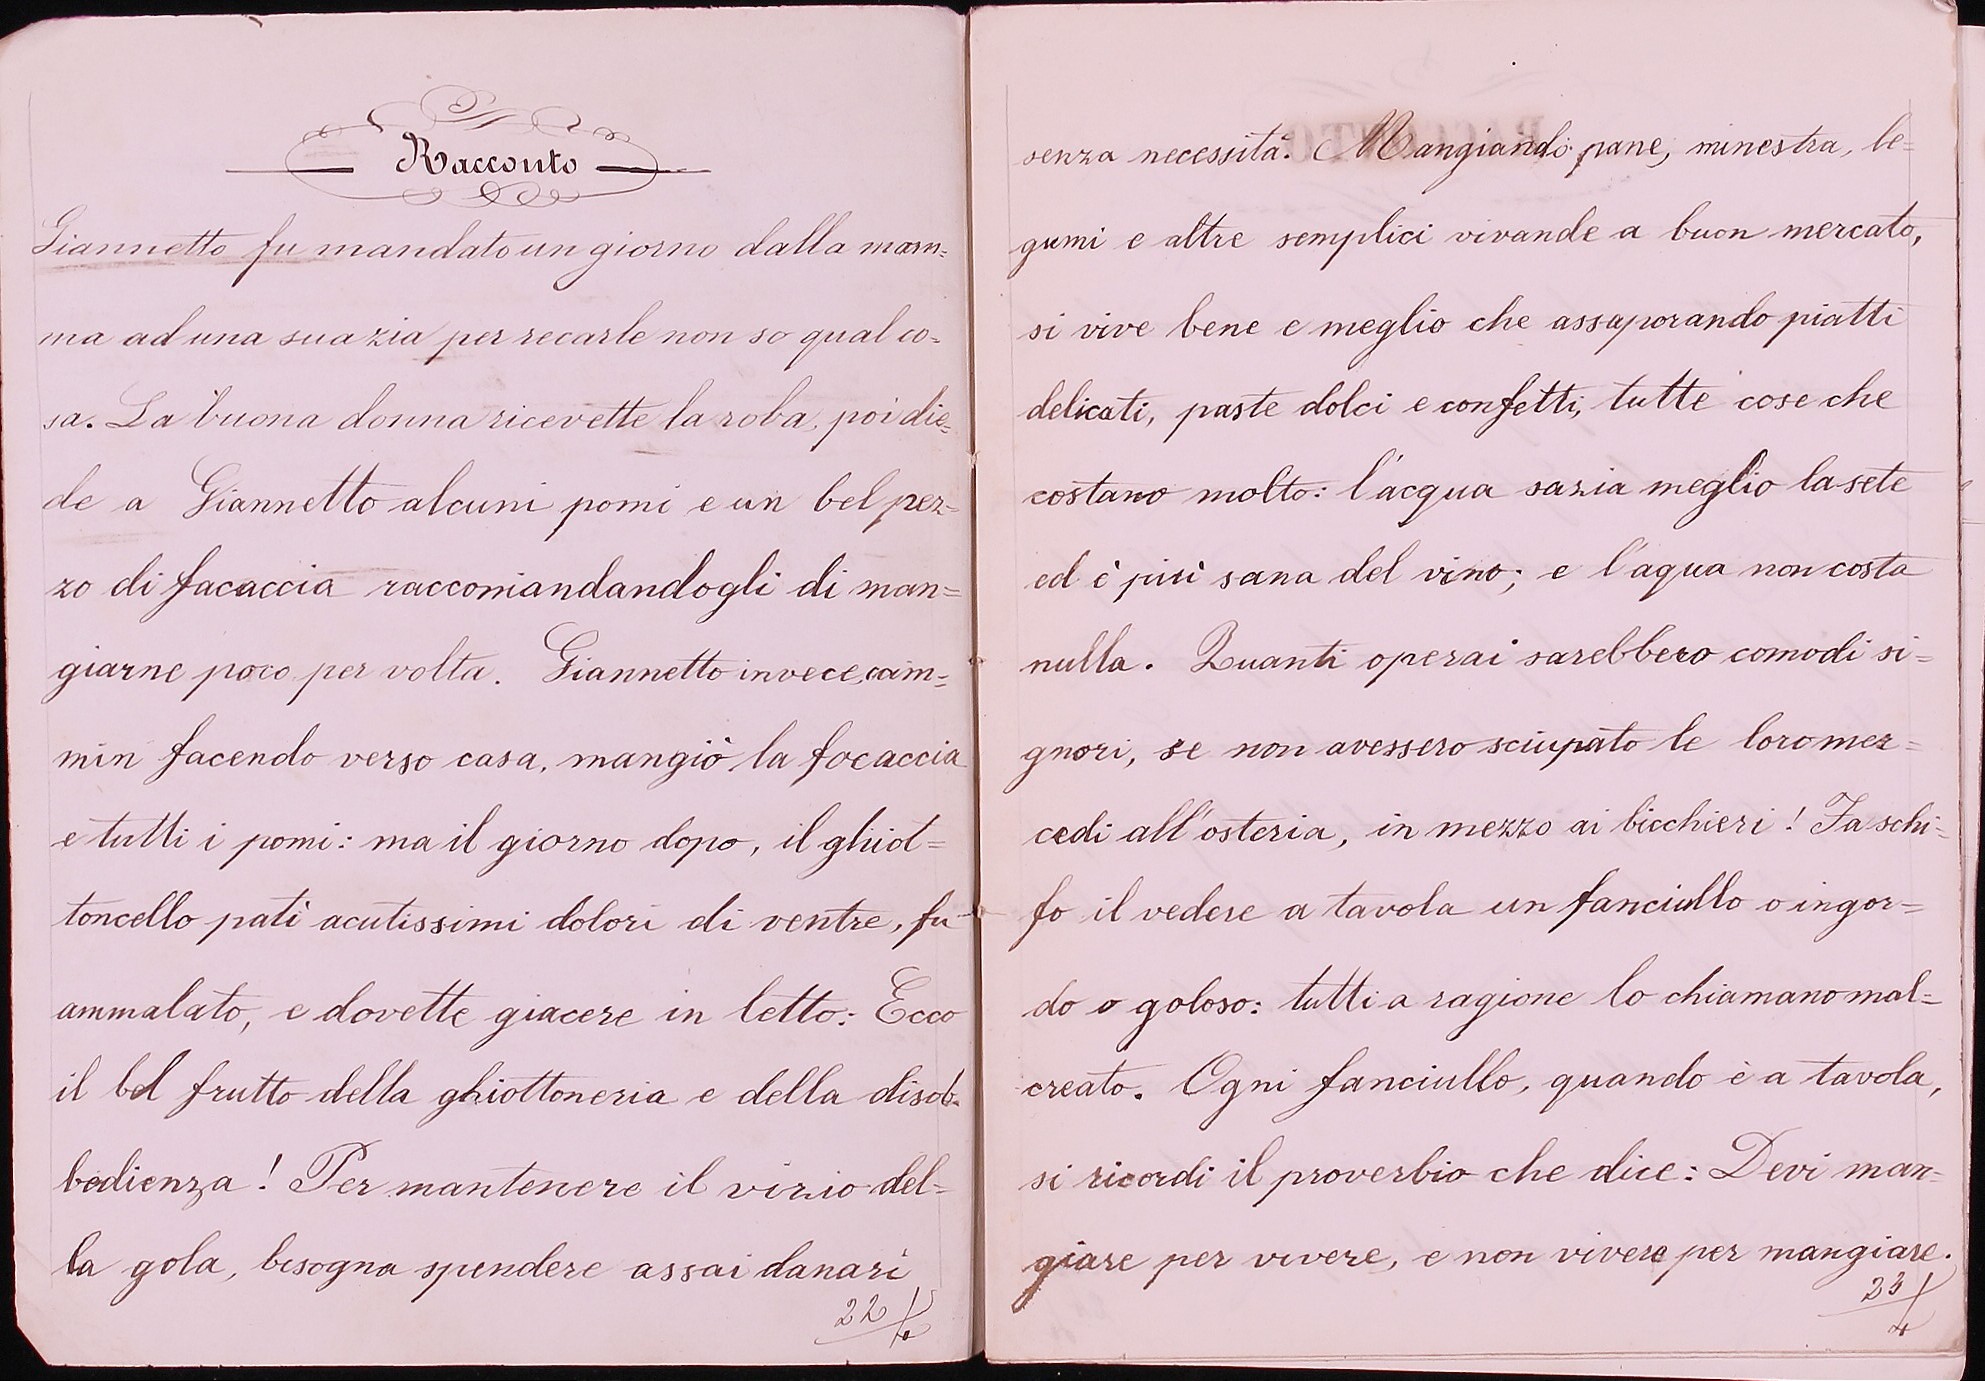 Racconto
Giannetto fu mandato un giorno dalla mam=
ma ad una sua zia per recarle non so qual co=
sa. La buona donna ricevette la roba, poi die=
de a Giannetto alcuni pomi e un bel pez=
zo di facaccia raccomandandogli di man=
giarne poco per volta. Giannetto invece, cam=
min facendo verso casa, mangiò la focaccia
e tutti i pomi: ma il giorno dopo, il ghiot=
toncello patì acutissimi dolori di ventre, fu
ammalato, e dovette giacere in letto: Ecco
il bel frutto della ghiottoneria e della disob=
bedienza! Per mantenere il vizio del=
la gola, bisogna spendere assai danari
22/4
senza necessità. Mangiando pane, minestra, le=
gumi e altre semplici vivande a buon mercato,
si vive bene e meglio che assaporando piatti
delicati, paste dolci e confetti, tutte cose che
costano molto: l'acqua sazia meglio la sete
ed è più sana del vino; e l'aqua non costa
nulla. Quanti operai sarebbero comodi si=
gnori, se non avessero sciupato le loro mer=
cedi all'osteria, in mezzo ai bicchieri! Fa schi=
fo il vedere a tavola un fanciullo o ingor=
do o goloso: tutti a ragione lo chiamano mal=
creato. Ogni fanciullo, quando è a tavola,
si ricordi il proverbio che dice: Devi man=
giare per vivere, e non vivere per mangiare.
23/4